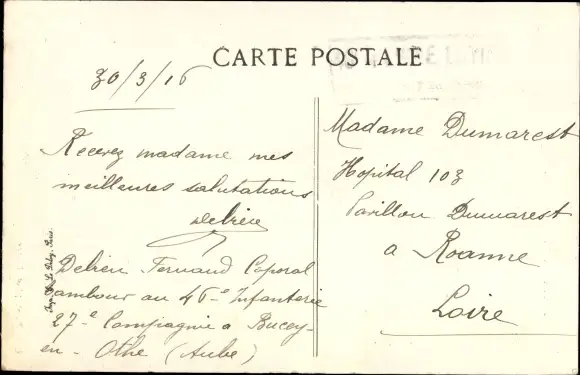 CARTE POSTALE
30/3/16
Recevez madame mes
meilleures salutations
Debrieu
Debrieu Fernand Caporal
tambour au 46e Infanterie
27e Compagnie a Bucey-
en-Othe (Aube)
Madame Dumarest
Hopital 103
Pavillon Dumarest
a Roanne
Loire